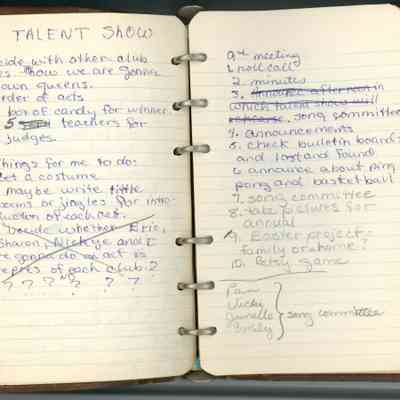 TALENT SHOW
cide with other club
es. how we are gonna
own queens.
rder of acts
box of candy for winner.
5 teachers for
judges.
hings for me to do:
et a costume
maybe write little
oems or jingles for intro
duction of each act.
Decide whether Eric,
Sharon, Nickye and I
are gonna do an act as
repres of each club?
? ? ? NO ? ? ?
9th meeting
1. roll call
2. minutes
3. announce afternoon in
which talent show will
rehearse. song committee
4. announcements
5. check bulletin board
and lost and found
6. annouce about ping
pong and basketball
7. song committee
8. take pictures for
annual
9. Easter project:
family or at home?
10. Betsy game
Pam
Vicky
Junelle
Emily
song committee